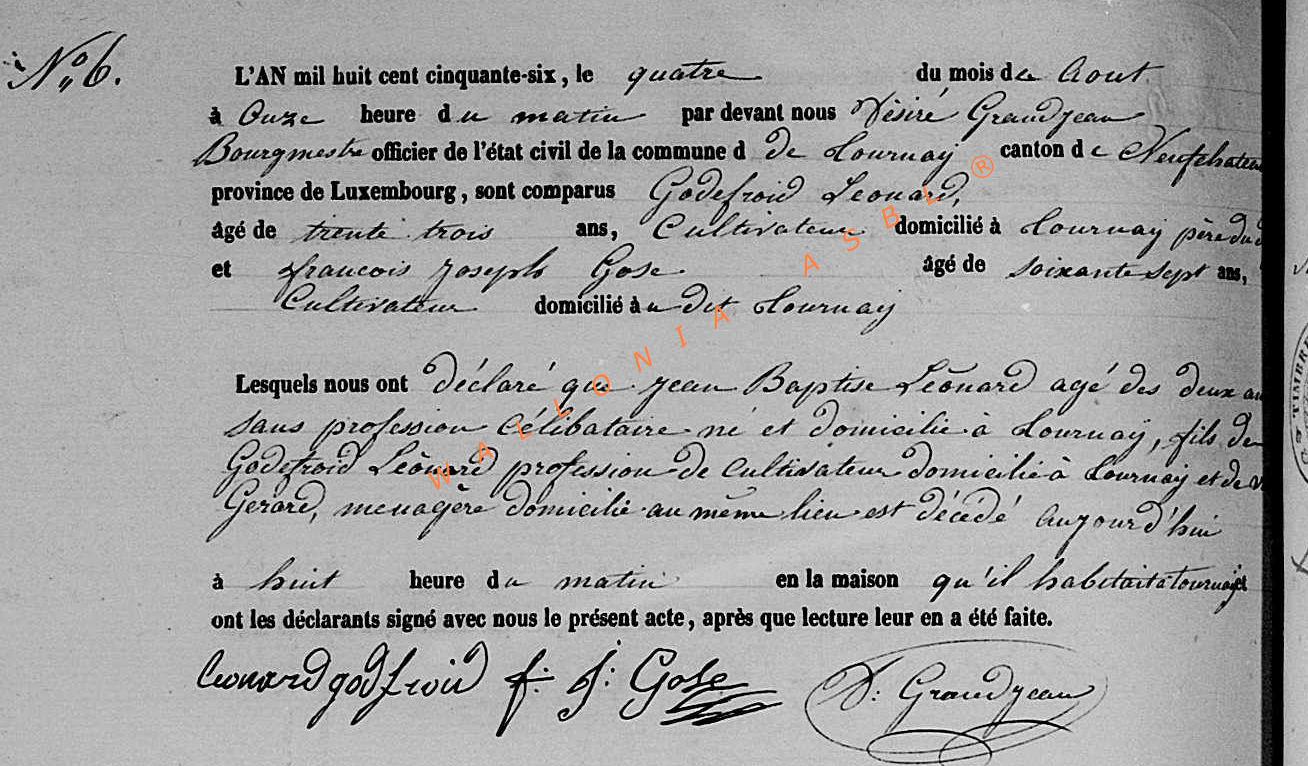 N° 6.
L'AN mil huit cent cinquante-six, le quatre du mois de Aout
à Onze heure du matin par devant nous Désiré Grandjean
Bourgmestre officier de l'état civil de la commune d de Tournay canton de Neufchateau
province de Luxembourg, sont comparus Godefroid Léonard,
âgé de trente trois ans, Cultivateur domicilié à Tournay père du
et françois Joseph Gose âgé de soixante sept ans,
Cultivateur domicilié au dit Tournay
Lesquels nous ont déclaré que Jean Baptise Léonard agé des deux an
sans profession Célibataire né et domicilié à Tournay, fils de
Godefroid Léonard profession de Cultivateur domicilié à Tournay et de
Gerard, menagère domicilié au même lieu est décédé aujourd'hui
à huit heure du matin en la maison qu'il habitait à Tournay et
ont les déclarants signé avec nous le présent acte, après que lecture leur en a été faite.
Leonard godfroid f: J: Gose D: Grandjean
WALLONIA ASBL ®
TIMBRE